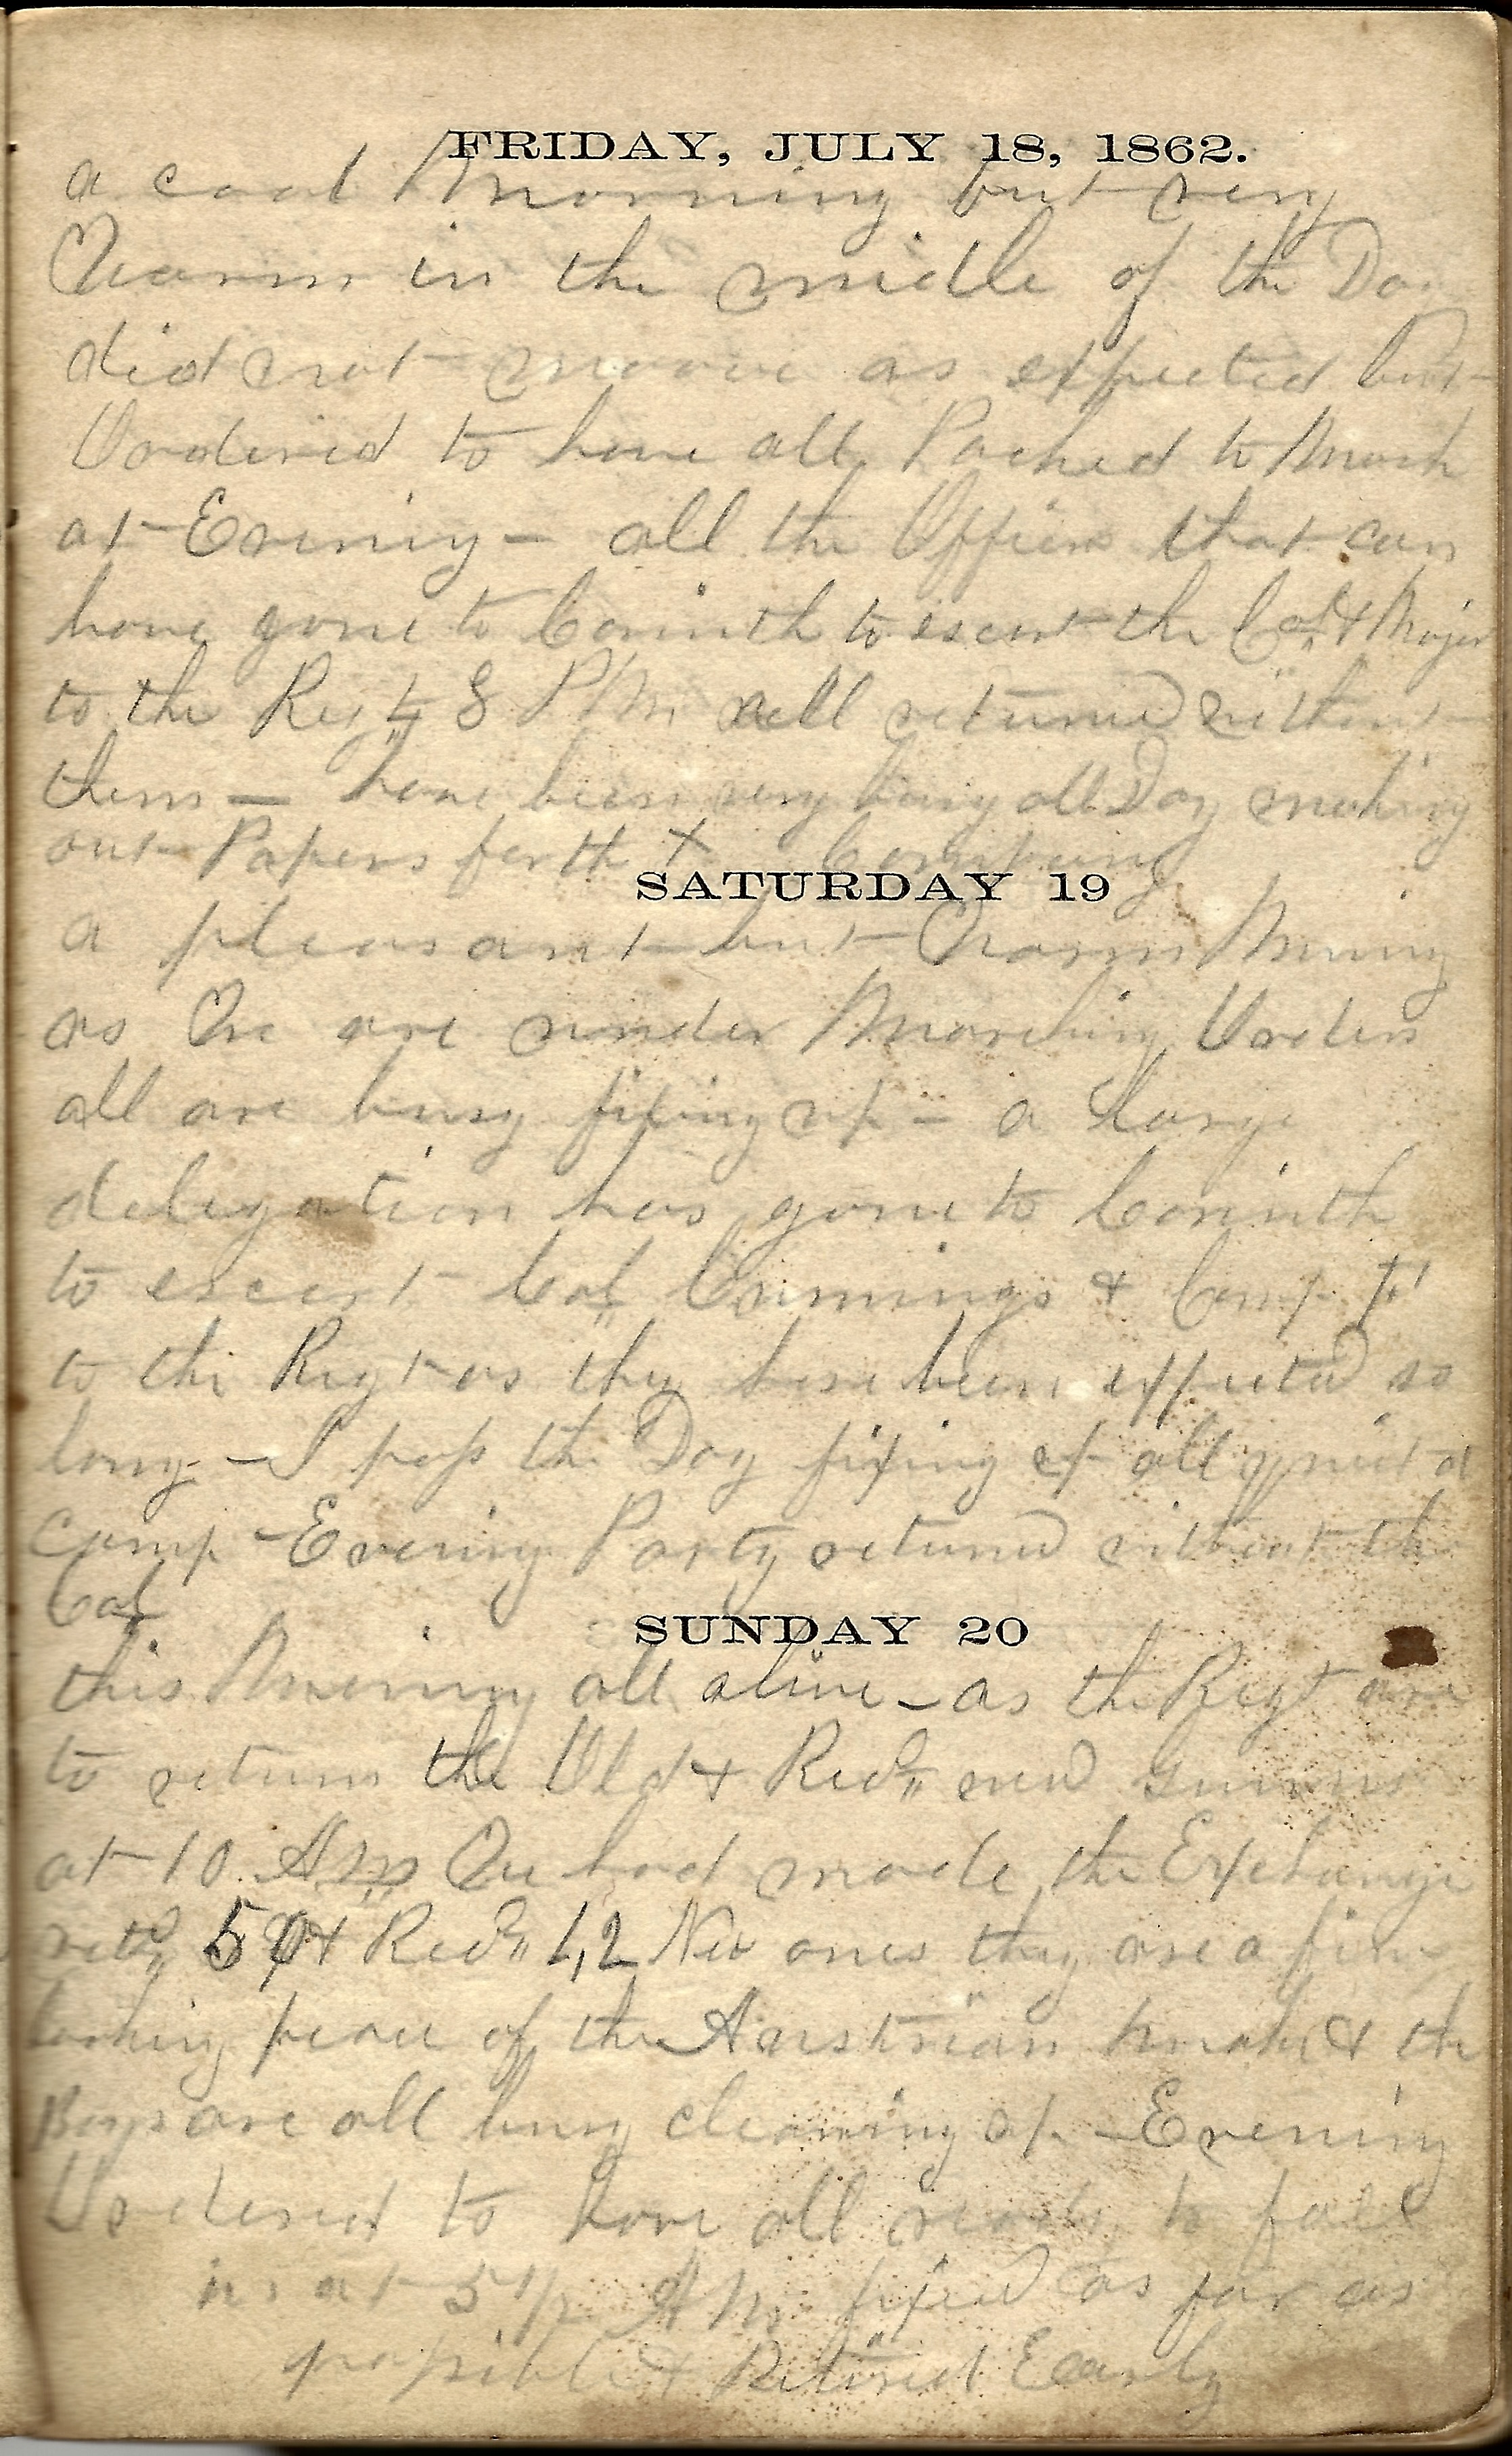 FRIDAY, JULY 18, 1862.
a cool Morning but very
Warm in the midle of the Day
did not moove as expected but
Ordered to have all Packed to March
at Evening - all the Officers that can
have gone to Corinth to escort the Col. & Major
to the Regt 8 P.M. all returned without
them — have been very busy all Day making
out Papers for the Company
SATURDAY 19
a pleasant but Warm Morning
as We are under Marching Orders
all are busy fixing up - a large
delegation has gone to Corinth
to escort Col Cummings &
to the Regt as they have been expected so
long - I pass the Day fixing up all
camp - Evening Party returned without the
Col
SUNDAY 20
this Morning all alive - as the Regt are
to return the Old & Recd new Guns
at 10 A.M We had made the Exchange
retd & Recd 42 New ones they are a fine
looking peace of the Austrian make & the
Boys are all busy cleaning up - Evening
Ordered to have all ready to fall
in at 5 1/2 A M. fixed as far as
possible & Retired Early